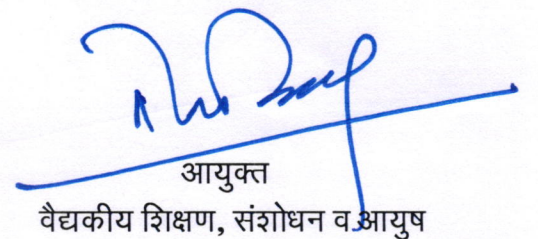 आयुक्त
वैद्यकीय शिक्षण, संशोधन व आयुष